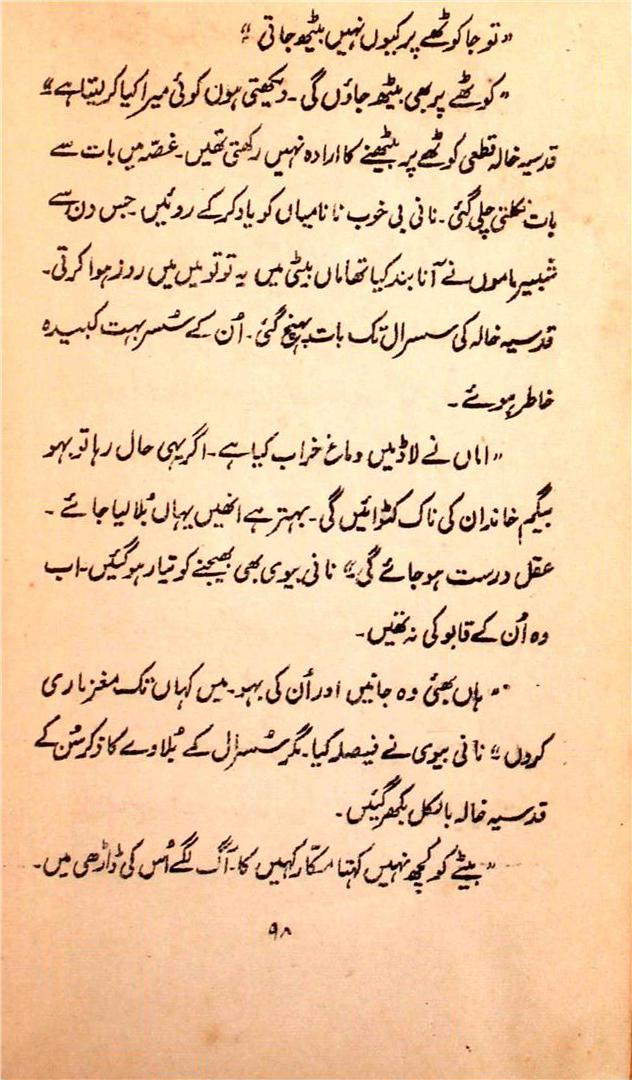 "تو جا کوٹھے پر کیوں نہیں بیٹھ جاتی"
"کوٹھے پر بھی بیٹھ جاؤں گی۔ دیکھتی ہوں کوئی میرا کیا کر لیتا ہے"
قدسیہ خالہ قطعی کوٹھے پر بیٹھنے کا ارادہ نہیں رکھتی تھیں۔ غصّہ میں بات سے
بات نکلتی چلی گئی۔ نانی بی خوب نانا میاں کو یاد کر کے روئیں۔ جس دن سے
شبیر ماموں نے آنا بند کیا تھا ماں بیٹی میں یہ تو تو میں میں روز ہوا کرتی۔
قدسیہ خالہ کی سسرال تک بات پہنچ گئی۔ اُن کے سُسر بہت کبیدہ
خاطر ہوئے۔
"اماں نے لاڈ میں دماغ خراب کیا ہے۔ اگر یہی حال رہا تو بہو
بیگم خاندان کی ناک کٹوائیں گی۔ بہتر ہے انھیں یہاں بُلا لیا جائے۔
عقل درست ہو جائے گی" نانی بیوی بھی بھیجنے کو تیار ہو گئیں۔ اب
وہ اُن کے قابو کی نہ تھیں۔
"ہاں بھئی وہ جانیں اور اُن کی بہو۔ میں کہاں تک مغز ماری
کروں" نانی بیوی نے فیصلہ کیا۔ مگر سُسرال کے بُلاوے کا ذکر سُن کے
قدسیہ خالہ بالکل بکھر گئیں۔
"بیٹے کو کچھ نہیں کہتا مکّار کہیں کا۔ آگ لگے اُس کی ڈاڑھی میں۔
۹۸